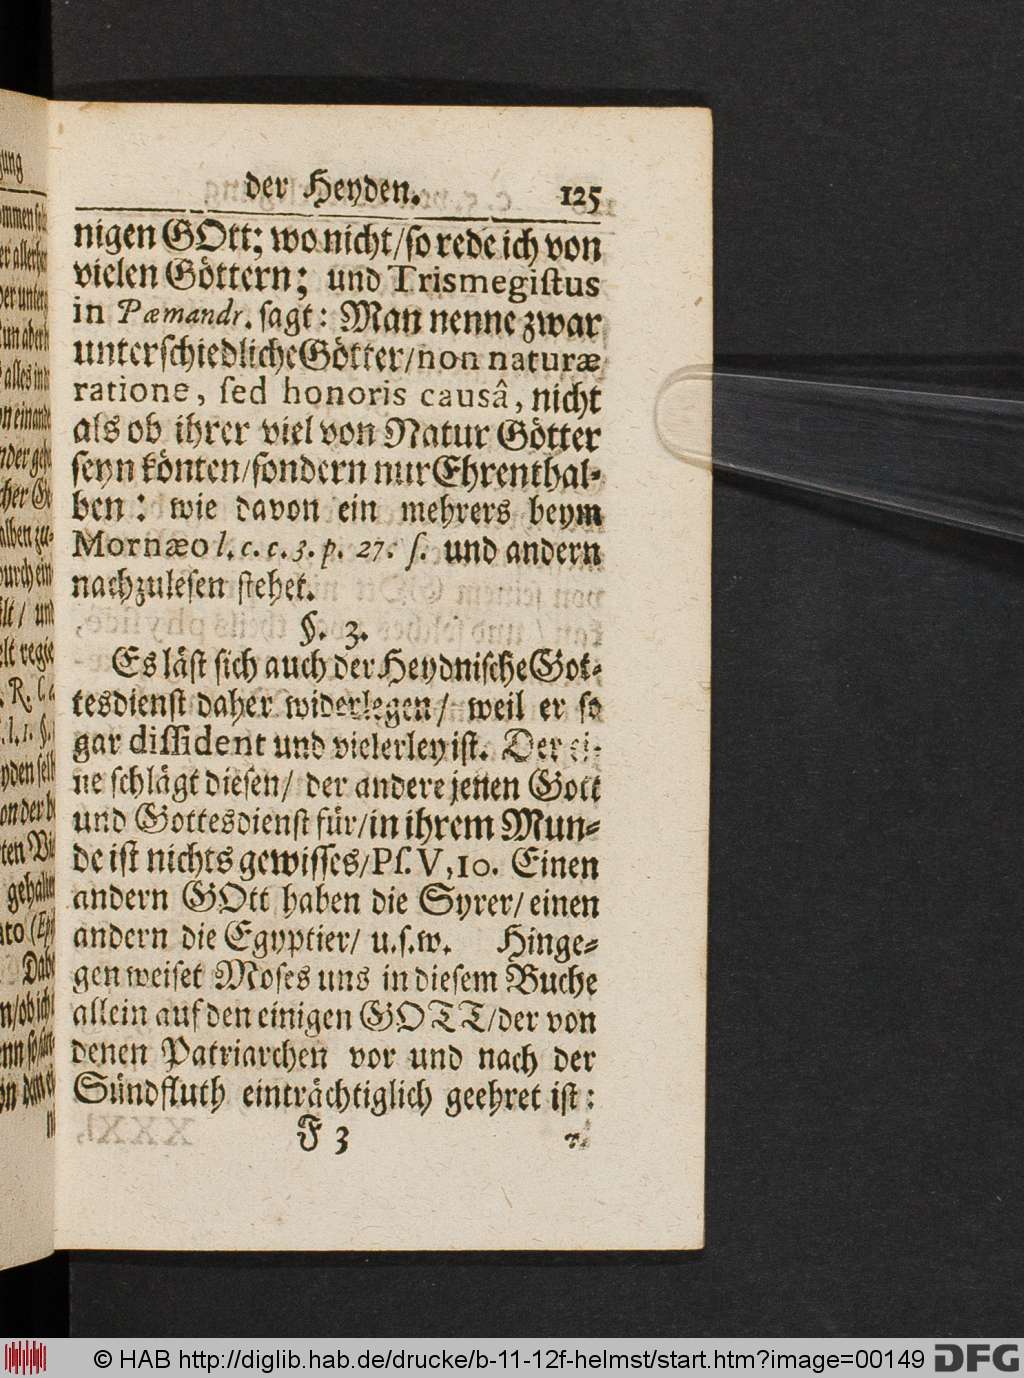 der Heyden. 125
nigen GOtt; wo nicht/so rede ich von
vielen Göttern; und Trismegistus
in Pæmandr. sagt: Man nenne zwar
unterschiedliche Götter/non naturæ
ratione, sed honoris causâ, nicht
als ob ihrer viel von Natur Götter
seyn könten/sondern nur Ehrenthal-
ben: wie davon ein mehrers beym
Mornæo l. c. c. 3. p. 27. s. und andern
nachzulesen stehet.
§. 3.
Es läst sich auch der Heydnische Got-
tesdienst daher widerlegen/ weil er so
gar dissident und vielerley ist. Der ei-
ne schlägt diesen/ der andere jenen Gott
und Gottesdienst für/in ihrem Mun-
de ist nichts gewisses/Ps. V, 10. Einen
andern GOtt haben die Syrer/ einen
andern die Egyptier/ u.s.w. Hinge-
gen weiset Moses uns in diesem Buche
allein auf den einigen GOTT/der von
denen Patriarchen vor und nach der
Sündfluth einträchtiglich geehret ist:
F 3
© HAB http://diglib.hab.de/drucke/b-11-12f-helmst/start.htm?image=00149 DFG